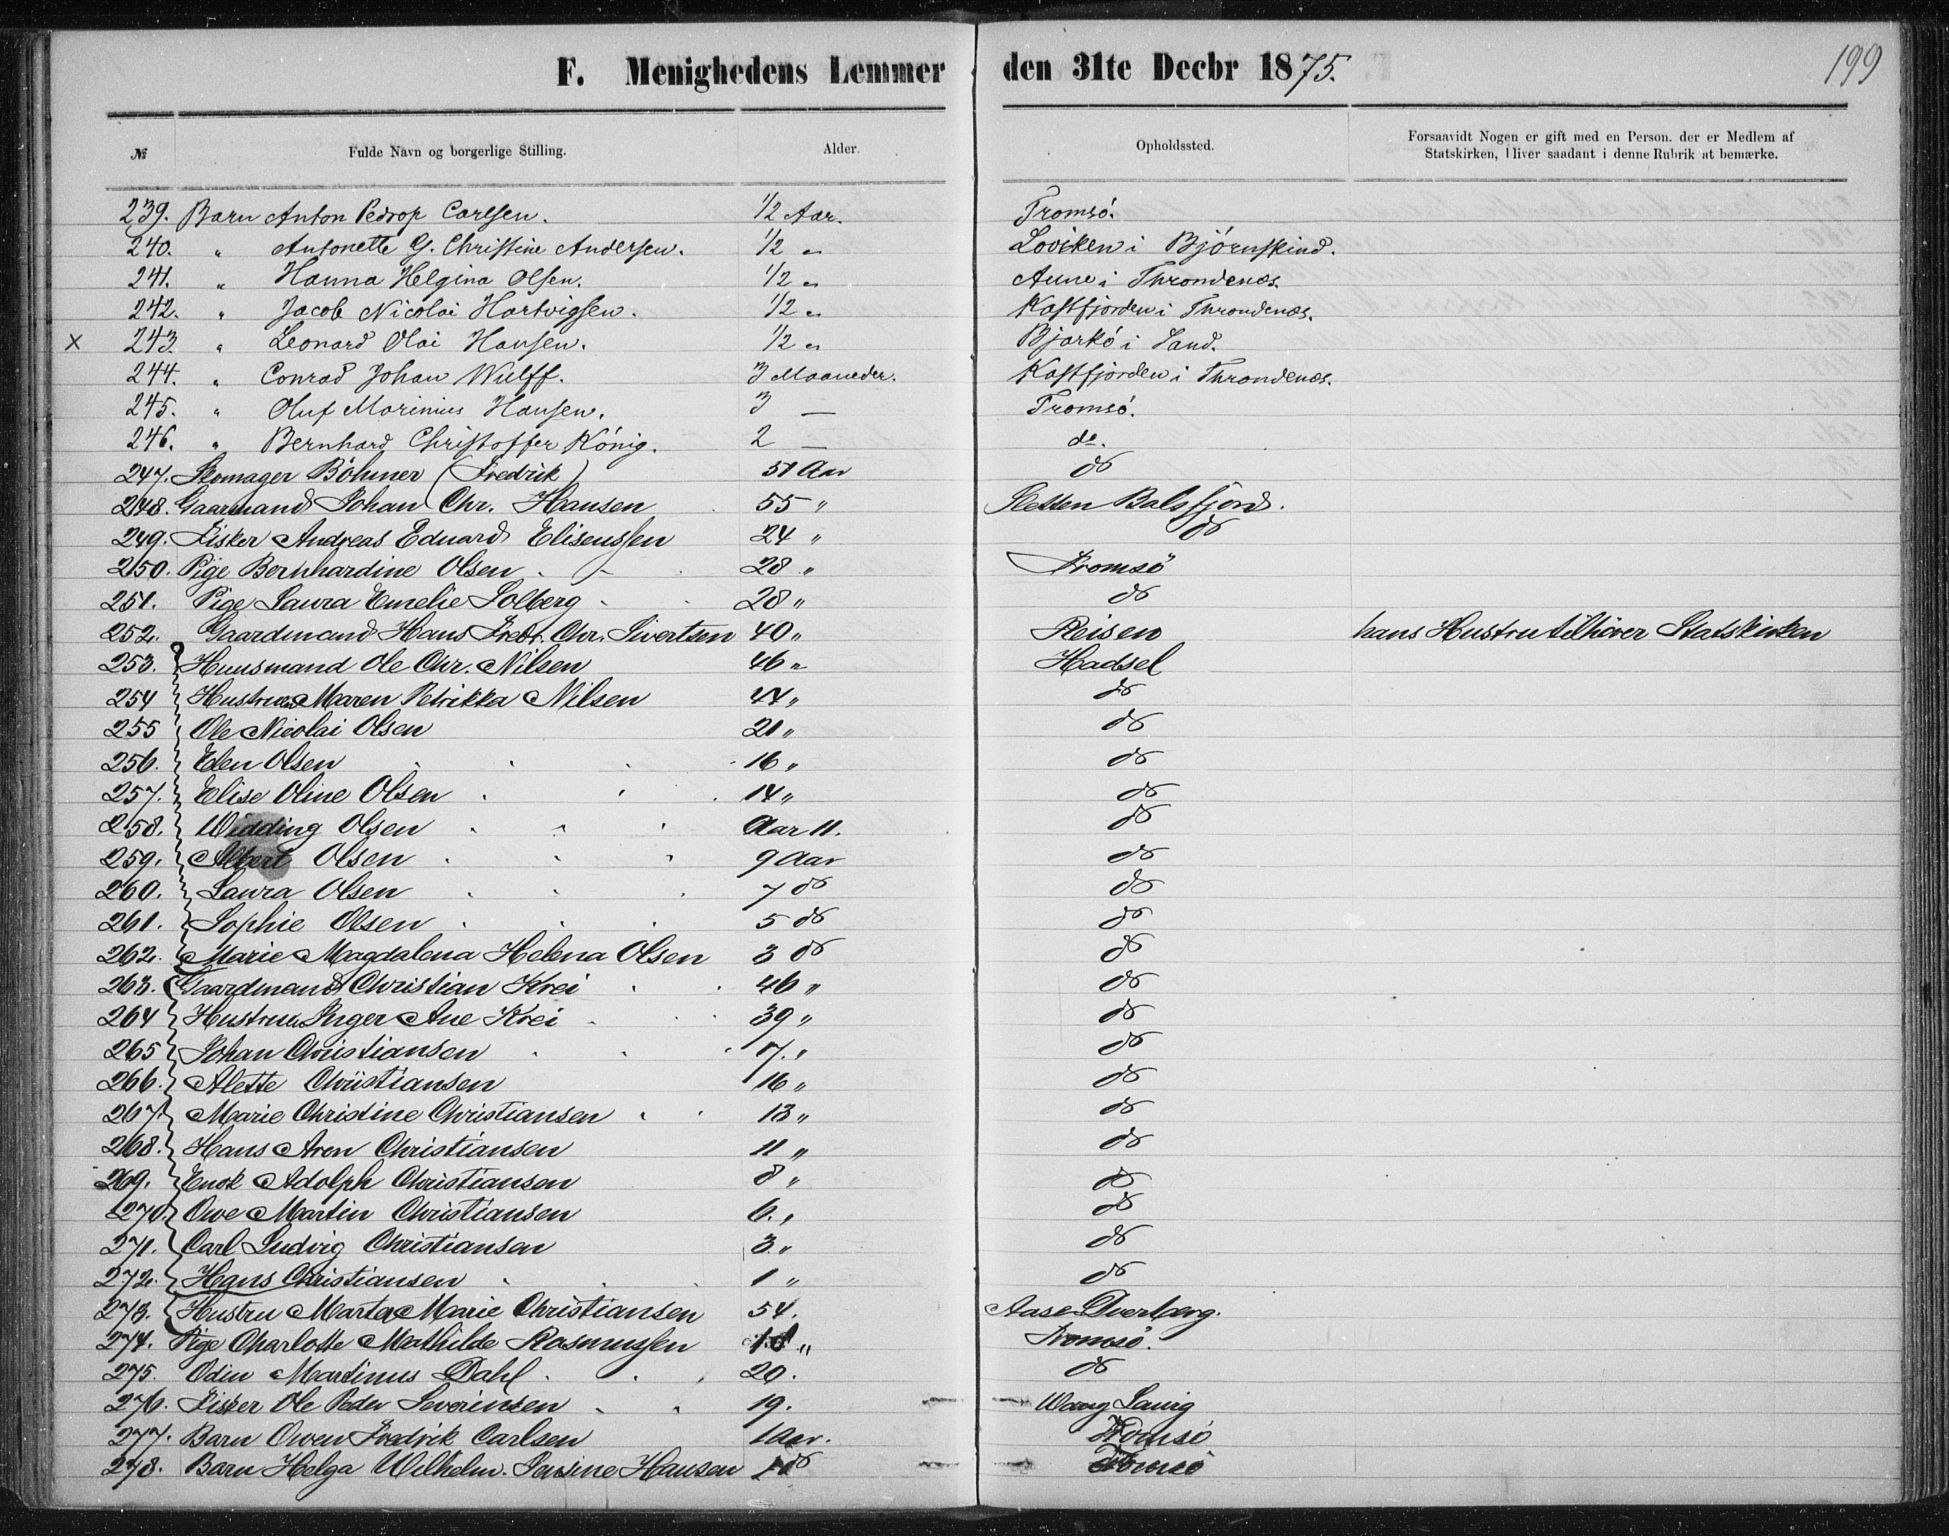 F. Menighedens Lemmer den 31te Decbr 1875. 199
№ Fulde Navn og borgerlige Stilling. Alder. Opholdssted. Forsaavidt Nogen er gift med en Person. der er Medlem af
Statskirken, bliver saadant i denne Rubrik at bemærke.
239. Barn Anton Pedrop Carlsen. 1/2 Aar. Tromsö.
240. " Antonette G. Christine Andersen. 1/2 " Loviken i Björnskind.
241. " Hanna Helgina Olsen. 1/2 " Aune i Throndenæs.
242. " Jacob Nicolai Hartvigsen. 1/2 " Kastfjorden i Throndenæs.
x 243. " Leonard Olai Hansen. 1/2 " Bjarkö i Sand.
244. " Conrad Johan Wulff. 3 Maaneder. Kastfjorden i Throndenæs.
245. " Oluf Marinius Hansen. 3 — Tromsö.
246. " Bernhard Christoffer König. 2 — do.
247. Skomager Böhmer (Fredrik) 51 Aar do
248. Gaarmand Johan Chr. Hansen 55 " Sletten Balsfjord.
249. Fisker Andreas Eduard Elisenssen 24 " do
250. Pige Bernhardine Olsen 28 " Tromsö
251. Pige Laura Emelie Solberg 28 " do
252. Gaardmand Hans Fredr. Chr. Sivertsen 40 " Reisen hans Hustru tilhörer Statskirken
253. Huusmand Ole Chr. Nilsen 46 " Hadsel
254 Hustrues Maren Petrikka Nilsen 44 " do
255 Ole Nicolai Olsen 21 " do
256. Eden Olsen 16 " do
257. Elise Oline Olsen 14 " do
258. Widding Olsen Aar 11. do
259. Albert Olsen 9 Aar do
260. Laura Olsen 7 do do
261. Sophie Olsen 5 do do
262. Marie Magdalena Helena Olsen 3 do do
263. Gaardmand Christian Krei 46 " do
264 Hustrue Inger Ane Krei 39 " do
265 Johan Christiansen 17. " do
266. Alette Christiansen 16 " do
267. Marie Christine Christiansen 13 " do
268. Hans Aren Christiansen 11 " do
269. Enok Adolph Christiansen 8 " do
270 Owe Martin Christiansen 6. " do
271. Carl Ludvig Christiansen 3. " do
272. Hans Christiansen 1 " do
273. Hustru Marta Marie Christiansen 54. Aase Dverberg.
274. Pige Charlotte Mathilde Rasmussen " Tromsö.
275. Odin Martinus Dahl 20. do
276. Fisker Ole Peder Severinsen 19.
277. Barn Owen Fredrik Carlsen 1 Aar. Tromsö
278. Barn Helga Wilhelm. Hansen do Tromsö